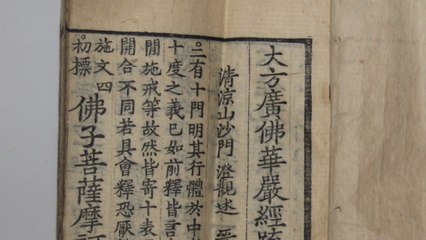 大方廣佛華嚴經疏
清涼山沙門 澄觀述 晉
二有十門明其行體於中
十度之義已如前釋皆言
閒施戒等故然皆寄十表
開合不同若具會釋恐厭
施文四
初標
佛子菩薩摩訶